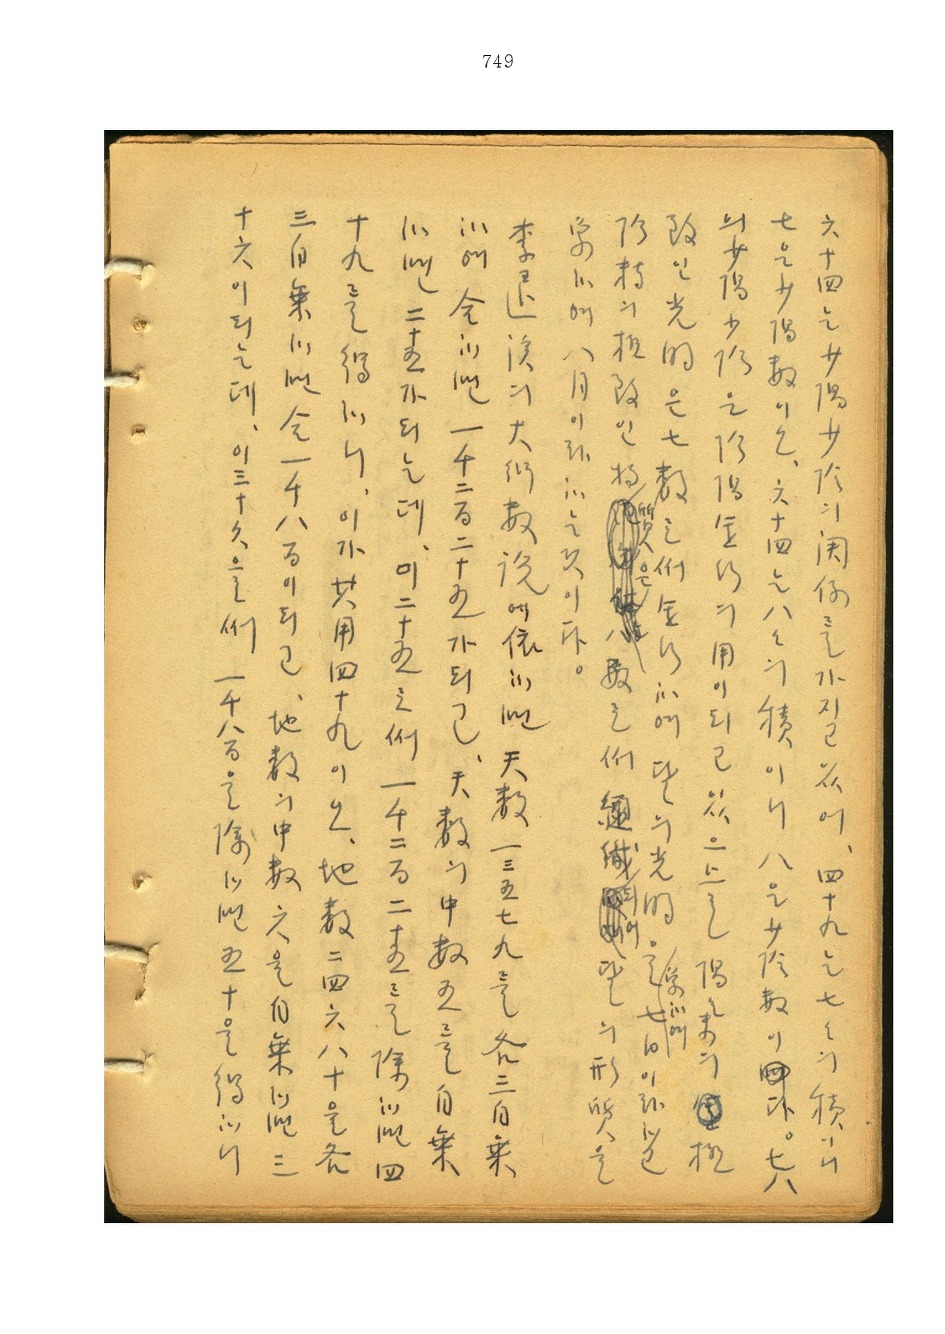 749
六十四는 少陽少陰의 関係를 가지고 있어, 四十九는 七七의 積이니
七은 少陽数이오, 六十四는 八八의 積이니 八은 少陰数이다。七八
의 少陽少陰은 陰陽金火의 用이되고 있으므로 陽 의 極
致인 光明은 七数로써 金火하여 달의 光明을 象하여 七日이라하고
陰 의 極致인 質은 八数로써 되어 달의 形質을
象하여 八月이라 하는 것이다。
李 의 大衍数説에 依하면 天数 一三五七九를 各三自乗
하여 合하면 一千二百二十五가되고, 天数의 中数 五를 自乗
하면 二十五가 되는데, 이 二十五로써 一千二百二十五를 除하면 四
十九를 得하니, 이가 其用四十九이오, 地数 二四六八十을 各
三自乗하면 合 一千八百이되고, 地数의 中数 六을 自乗하면 三
十六이 되는데, 이 三十六으로써 一千八百을 除하면 五十을 得하니